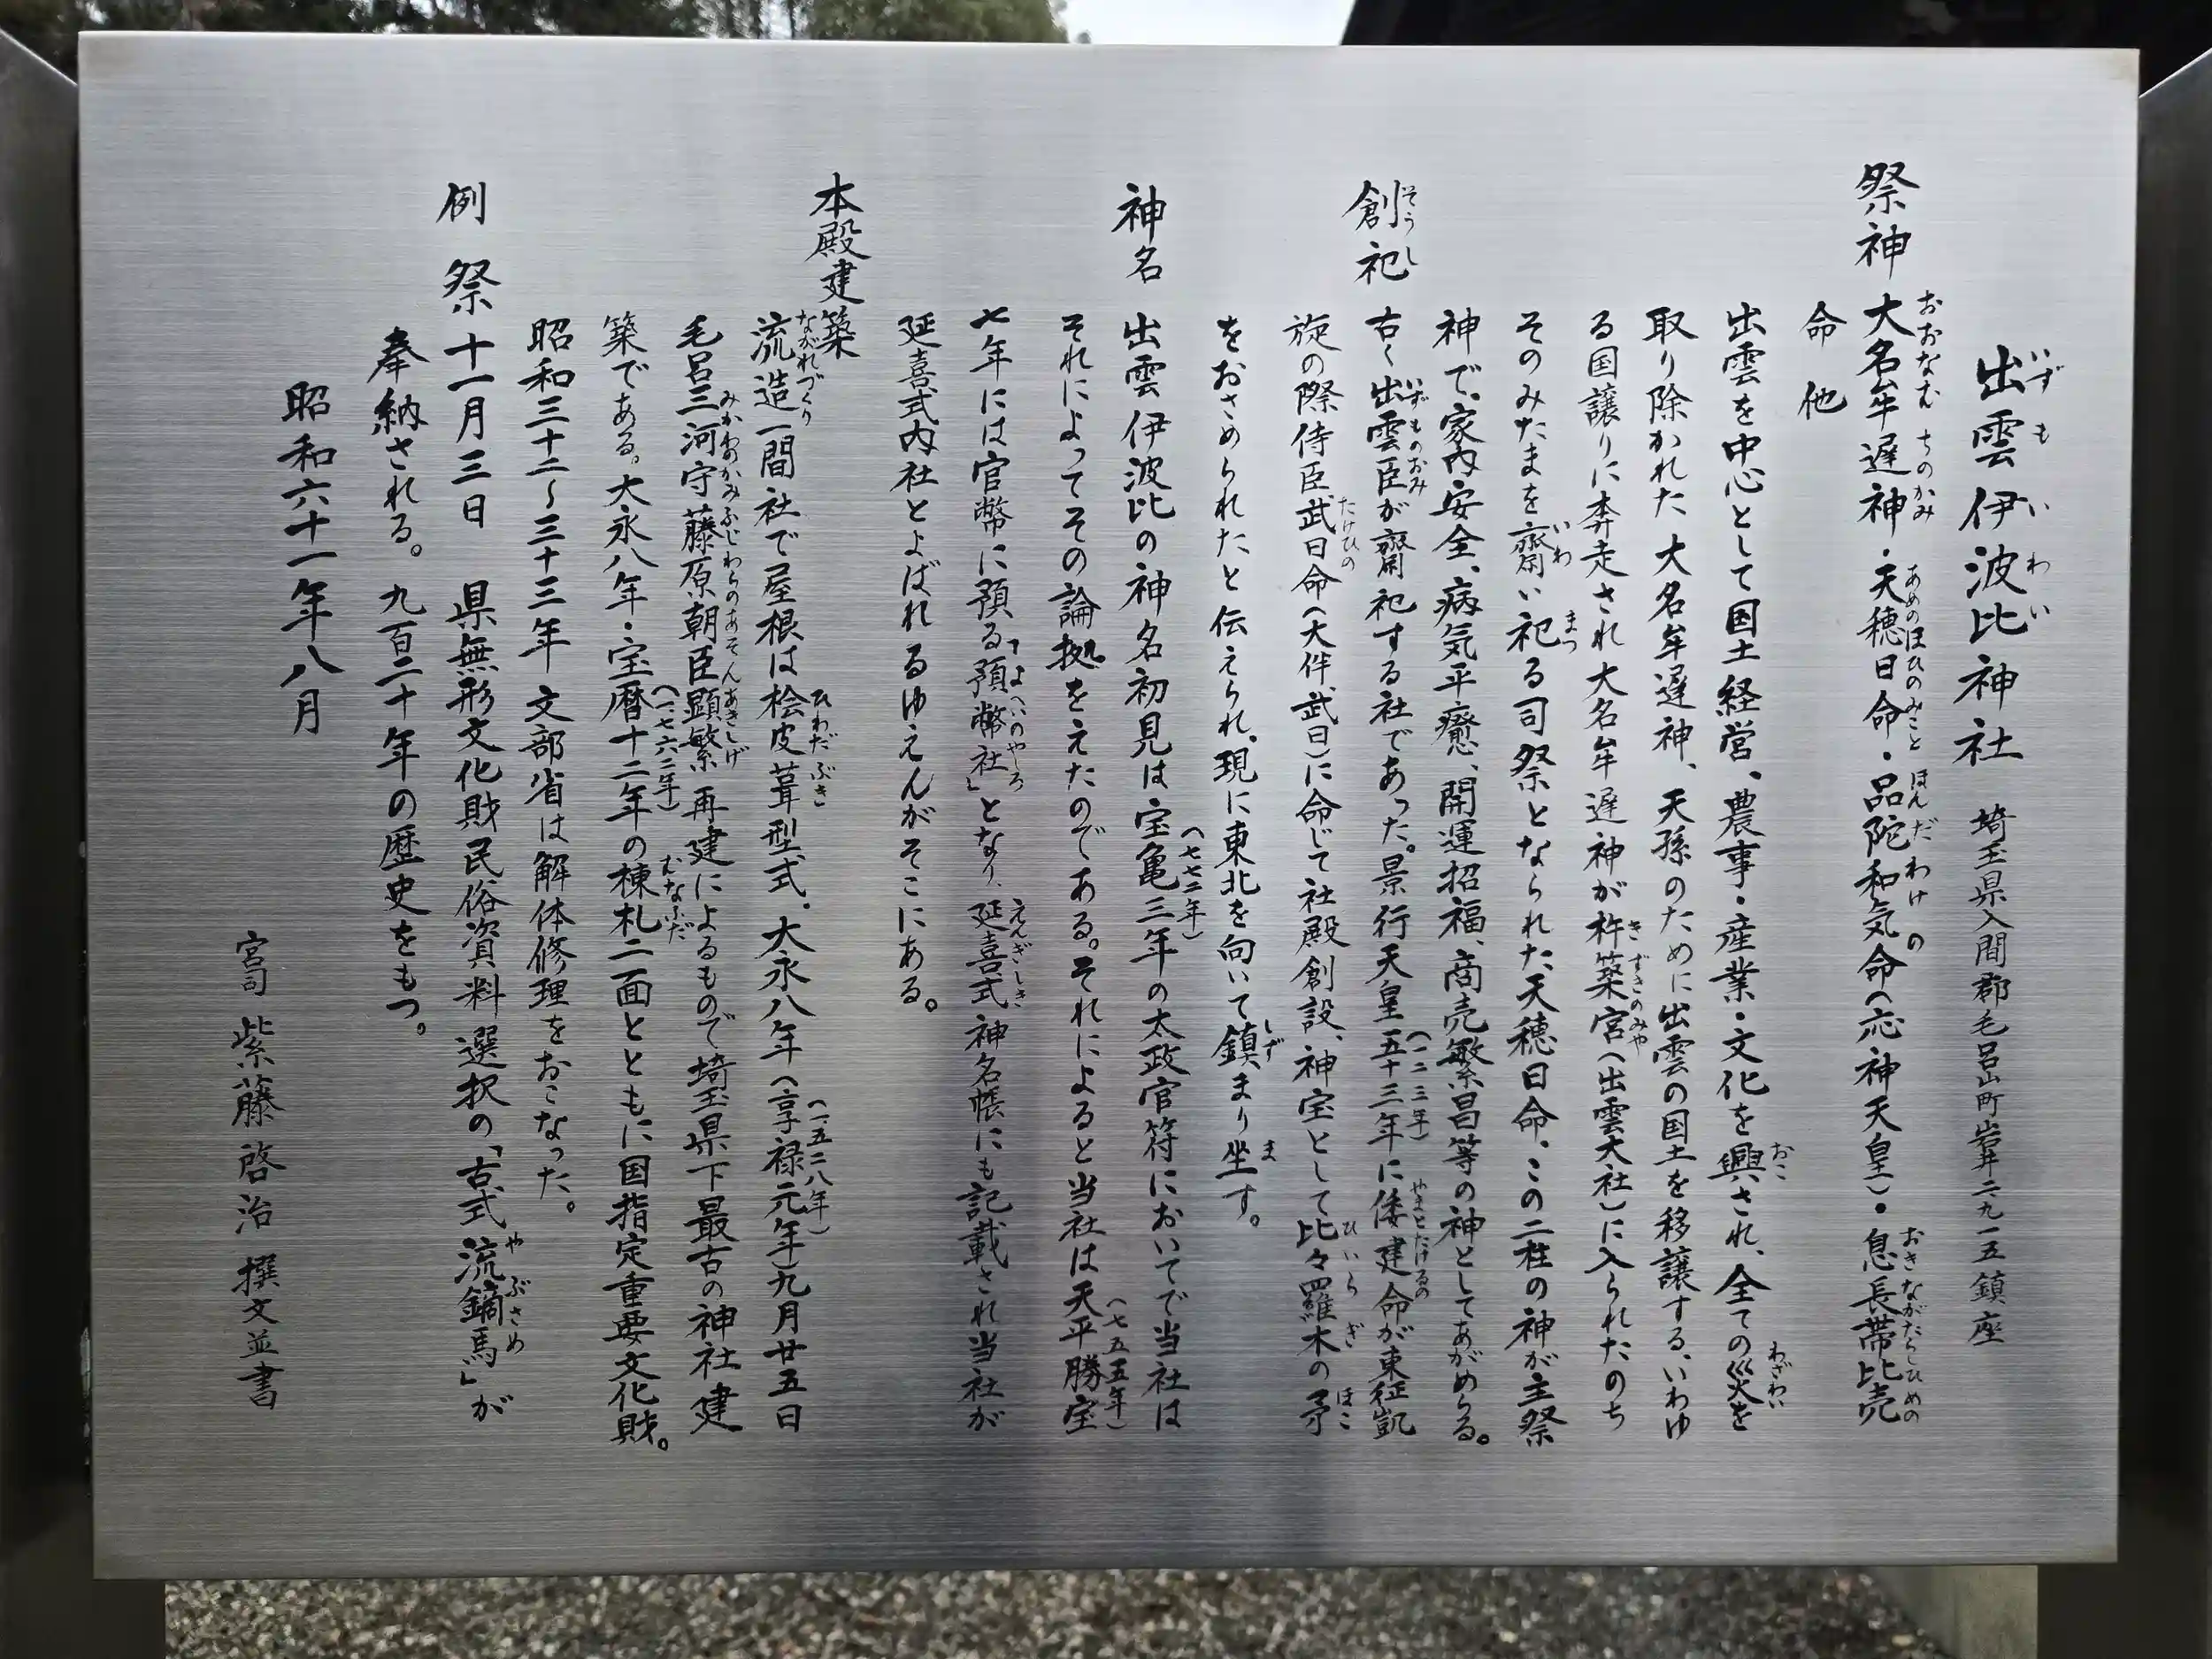 出雲伊波比神社 埼玉県入間郡毛呂山町岩井二九一五鎮座
祭神 大名牟遅神・天穂日命・品陀和気命(応神天皇)・息長帯比売
命 他
出雲を中心として国土経営、農事・産業・文化を興され、全ての災を
取り除かれた大名牟遅神、天孫のために出雲の国土を移譲する、いわゆ
る国譲りに奔走され大名牟遅神が杵築宮(出雲大社)に入られたのち
そのみたまを齋い祀る司祭となられた天穂日命、この二柱の神が主祭
神で、家内安全、病気平癒、開運招福、商売繁昌等の神としてあがめらる。
創祀 古く出雲臣が齋祀する社であった。景行天皇五十三年(一二三年)に倭建命が東征凱
旋の際侍臣武日命(大伴武日)に命じて社殿創設、神宝として比々羅木の矛
をおさめられたと伝えられ、現に東北を向いて鎮まり坐す。
神名 出雲伊波比の神名初見は宝亀三年(七七二年)の太政官符においてで当社は
それによってその論拠をえたのである。それによると当社は天平勝宝
七年(七五五年)には官幣に預る「預幣社」となり、延喜式神名帳にも記載され当社が
延喜式内社とよばれるゆえんがそこにある。
本殿建築
流造一間社で屋根は桧皮葺型式。大永八年(享禄元年)(一五二八年)九月廿五日
毛呂三河守藤原朝臣顕繁再建によるもので埼玉県下最古の神社建
築である。大永八年・宝暦十二年(一七六二年)の棟札二面とともに国指定重要文化財。
昭和三十二〜三十三年文部省は解体修理をおこなった。
例祭 十一月三日 県無形文化財民俗資料選択の「古式流鏑馬」が
奉納される。九百二十年の歴史をもつ。
昭和六十一年八月
宮司 紫藤啓治 撰文並書